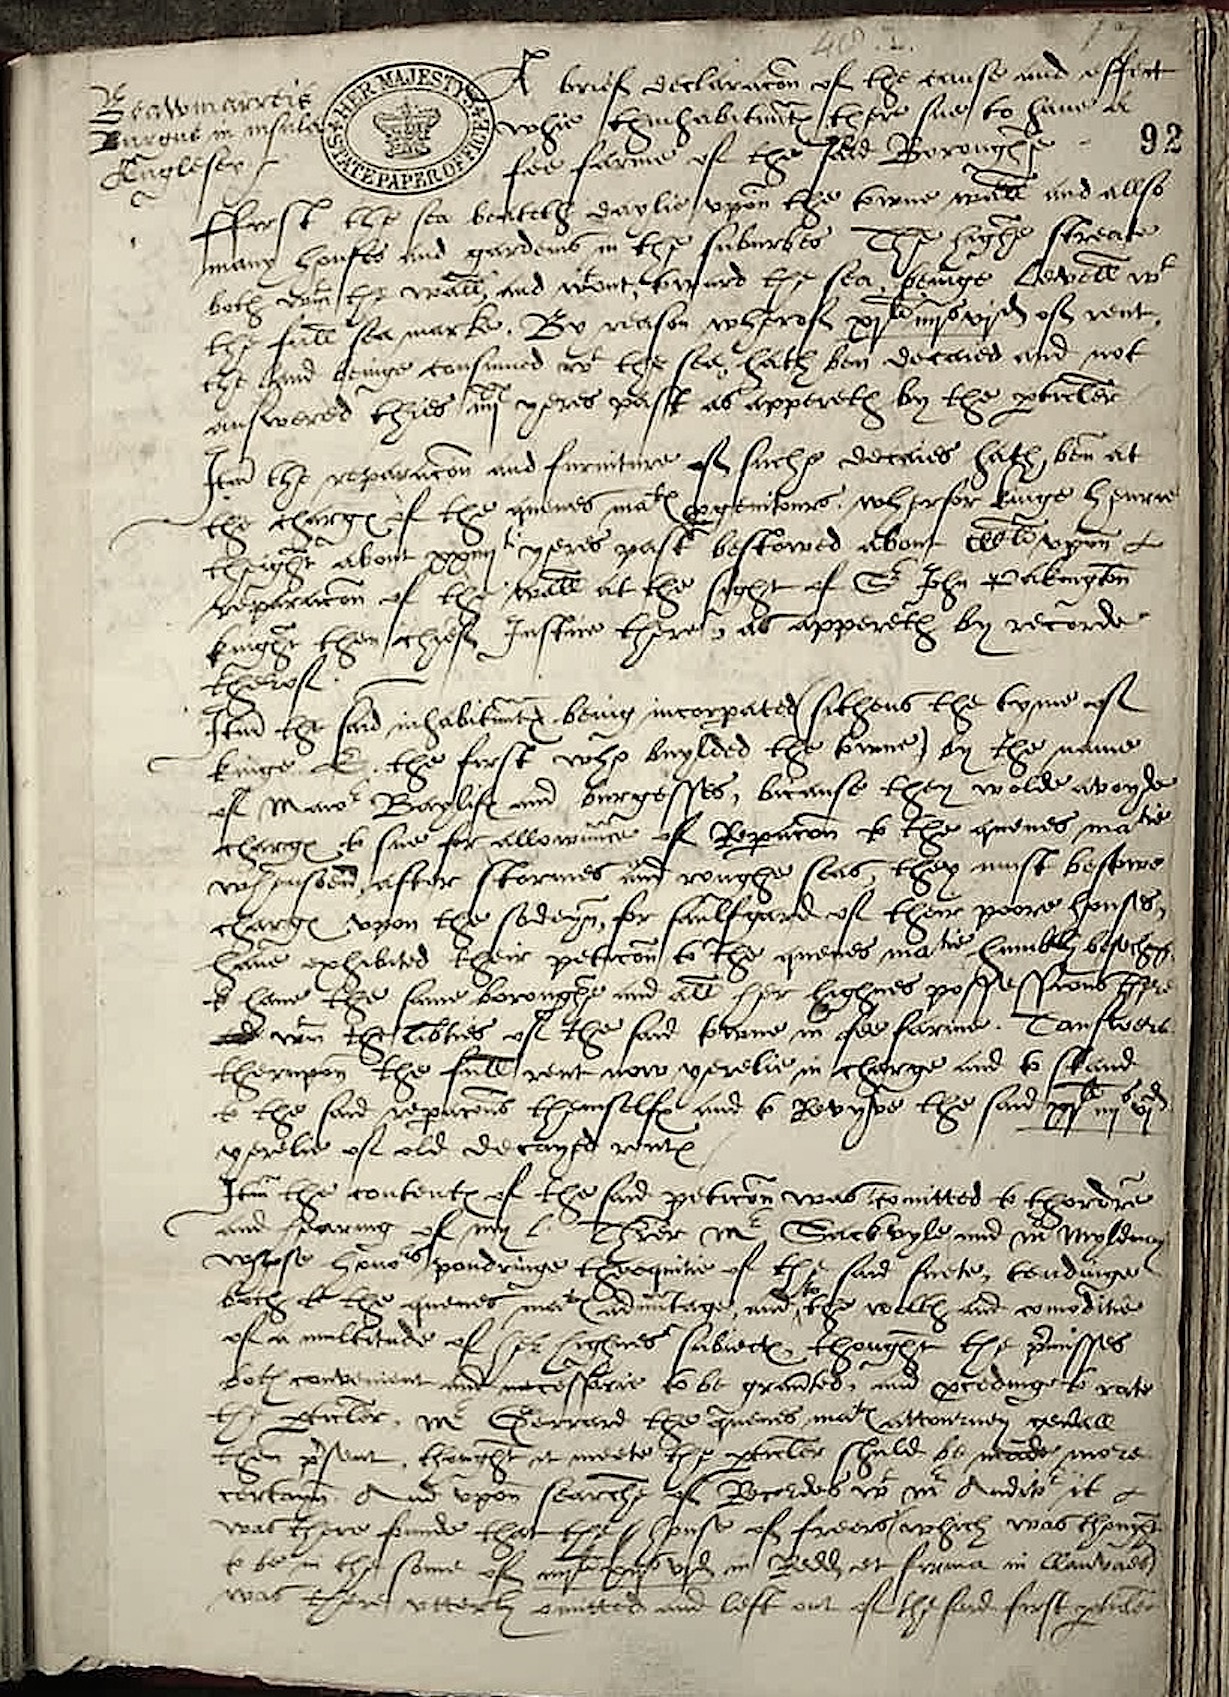 40. 2.
17
92
Beawmarreis
Burgus in insula
Anglesey
HER MAJESTY'S STATE PAPER OFFICE
A brief declaracōn of the cause and effect
whie thinhabitantꝭ there sue to haue a
fee farme of the said Boroughe
ffirst the sea beateth daylie vpon the towne wall and allso
many houses and gardens in the suburbes The highe streate
both wthin the wall, and wthout, toward the sea, beinge Levell wt
the full sea marke. By reason wherof xjli iiijs vjd of rent,
the land beinge consumed wt the sea, hath ben decaied and not
answered thies iiij yeres past as appereth by the pticler
Itm the reparacōn and furniture of suche decaies hath ben at
the chargꝭ of the quenes matꝭ pgenitours. wherfor kinge Henrie
theight about xxiiij ti yeres past bestowed about vpon
reparacōn of the wall at the sight of Sr John Pakington
knight then chief Justice there, as appereth by recorde
therof.
Itm the said inhabitantꝭ being incorpated (sithens the tyme of
kinge E. the first who buylded the towne) by the name
of Maior Baylifꝭ and burgesses, bicause they wolde avoyde
chargꝭ to sue for allowance of Repacōn to the quenes matie
whensoeũ, after stormes and roughe seas, they must bestowe
chargꝭ vpon the sodeyn, for saulfgard of their poore houses,
haue exhibited their peticōn to the quenes matie humbly beseching
to haue the same boroughe and all her highnes possessions there
wthin the libties of the said towne in fee farme. Tanswere
therupon the full rent now yerelie in charge and to stand
to the said repacōns themselfꝭ and to Revyve the said xjli iiijs vjd
yerelie of old decayed rentꝭ
Itm the contentꝭ of the said peticōn was comitted to thordre
and hearing of my L. Thrēr Mr Sackvyle and Mr Myldmay
whose honors pondringe thequitie of the said suete, tendinge
both to the quenes matꝭ advantage, and to the welth and comoditie
of a multitude of her highnes subiectꝭ, thought the pmisses
both convenient and necessarie to be graunted, and pceding to rate
the pticler. Mr Gerrard the quenes matꝭ attourney genāll
then psent, thought it meete the pticler shuld be made more
certayn. And vpon searche of Recordes wt Mr Auditor it
was there founde that the house of freers (which was thought
to be in the some of in Redd et firma in Llanvaes)
was there vtterly omitted and left out of the said first pticler